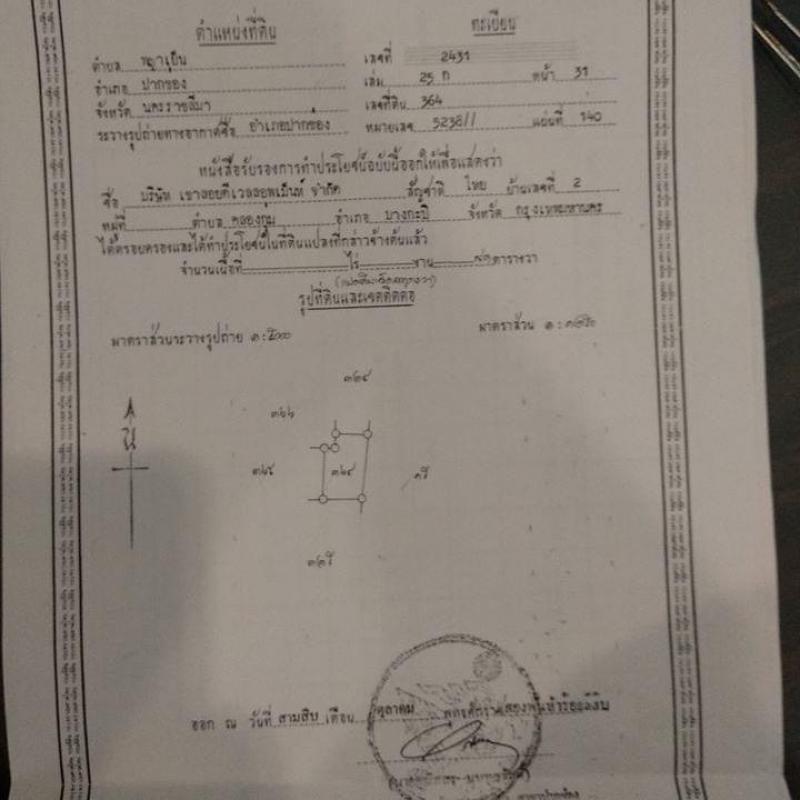 ตำแหน่งที่ดิน
ทะเบียน
ตำบล พญาเย็น
เลขที่ 2431
อำเภอ ปากชอง
เล่ม 25 ก หน้า 31
จังหวัด นครราชสีมา
เลขที่ดิน 364
ระวางรูปถ่ายทางอากาศชื่อ อำเภอปากชอง
หมายเลข 5238 // แผ่นที่ 140
หนังสือรับรองการทำประโยชน์ฉบับนี้ออกให้เพื่อแสดงว่า
ชื่อ บริษัท เขาลอยดีเวลลอพเม็นท์ จำกัด สัญชาติ ไทย บ้านเลขที่ 2
หมู่ที่ ตำบล คลองกุ่ม อำเภอ บางกะปิ จังหวัด กรุงเทพมหานคร
ได้ครอบครองและได้ทำประโยชน์ในที่ดินแปลงที่กล่าวข้างต้นแล้ว
จำนวนเนื้อที่ ไร่ งาน ตารางวา
รูปที่ดินและเขตติดต่อ
มาตราส่วนระวางรูปถ่าย ๑:๕๐๐๐
มาตราส่วน ๑:๑๒๕๐
๓๖๖
๓๖๕
๓๖๔
น
ออก ณ วันที่ สามสิบ เดือน ตุลาคม พุทธศักราชสองพันห้าร้อย